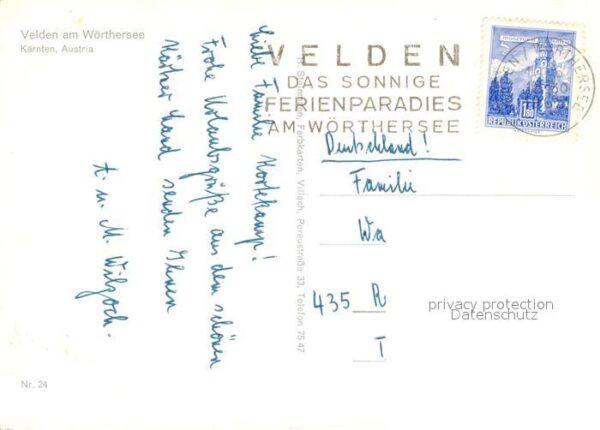 Velden am Wörthersee
Kärnten, Austria
Liebe Familie Kortekamp!
Frohe Urlaubsgrüße aus dem schönen
Kärtner Land senden Ihnen
A. u. M.
VELDEN
DAS SONNIGE
FERIENPARADIES
AM WÖRTHERSEE
1.80
REPUBLIK ÖSTERREICH
Deutschland!
Familie
Wa
435 R
T
privacy protection
Datenschutz
Farbkarten, Villach, Peraustraße 33, Telefon 7547
Nr. 24